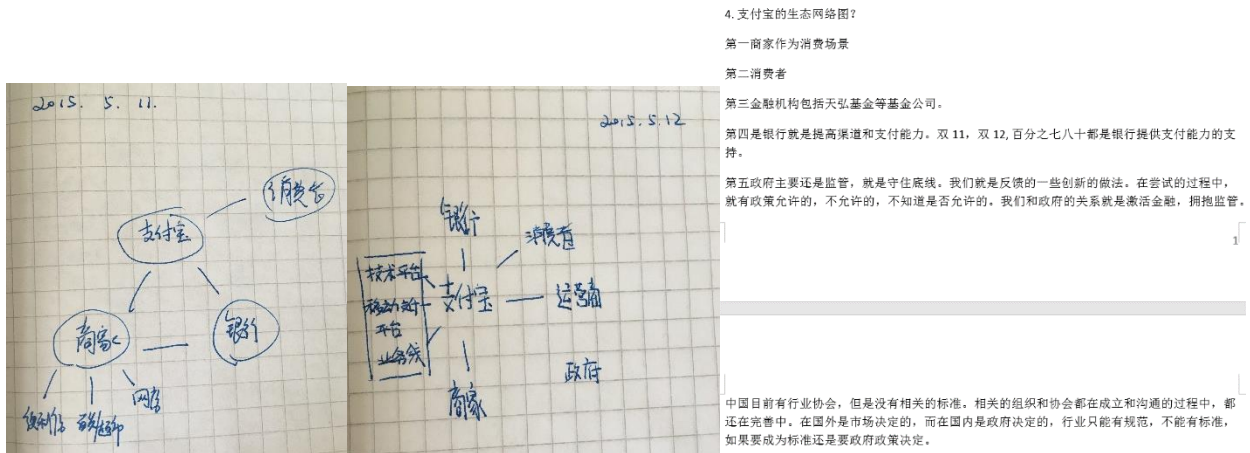 2015. 5. 11.
消费者
支付宝
商家
银行
便利店
百货超市
网店
2015.5.12
银行
消费者
技术平台
支付宝
运营商
移动支付
平台
业务线
政府
商家
4. 支付宝的生态网络图?
第一商家作为消费场景
第二消费者
第三金融机构包括天弘基金等基金公司。
第四是银行就是提高渠道和支付能力。双 11，双 12, 百分之七八十都是银行提供支付能力的支
持。
第五政府主要还是监管，就是守住底线。我们就是反馈的一些创新的做法。在尝试的过程中，
就有政策允许的，不允许的，不知道是否允许的。我们和政府的关系就是激活金融，拥抱监管。
1
中国目前有行业协会，但是没有相关的标准。相关的组织和协会都在成立和沟通的过程中，都
还在完善中。在国外是市场决定的，而在国内是政府决定的，行业只能有规范，不能有标准，
如果要成为标准还是要政府政策决定。